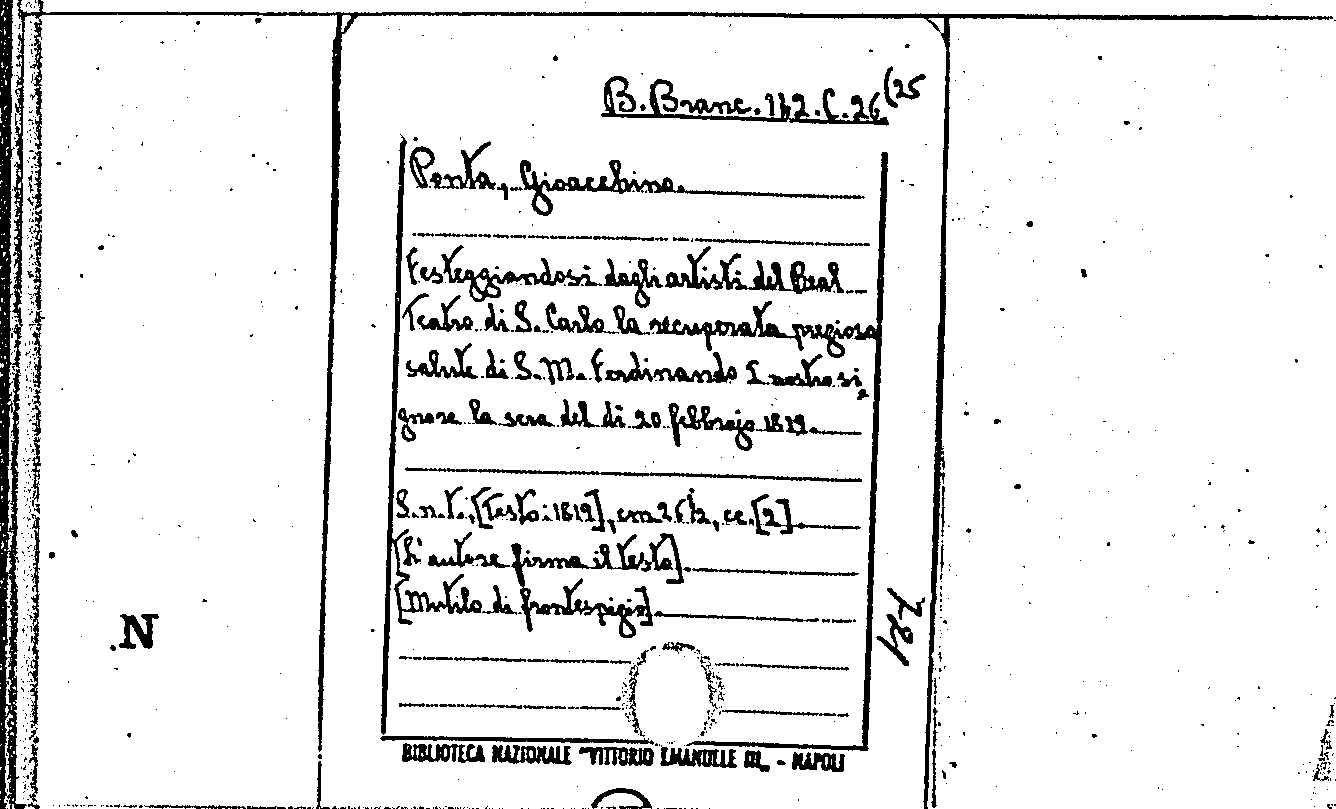 B. Branc. 112. C. 26 (25
Ponta, Gioacchino.
Festeggiandosi dagli artisti del Real
Teatro di S. Carlo la recuperata preziosa
salute di S. M. Ferdinando I nostro si=
gnore la sera del dì 20 febbrajo 1819.
S.n.t., [Testo: 1819], cm. 26½, cc. [2].
[L'autore firma il testo].
[Mutilo di frontespizio].
184
N
BIBLIOTECA NAZIONALE "VITTORIO EMANUELE III„ - NAPOLI